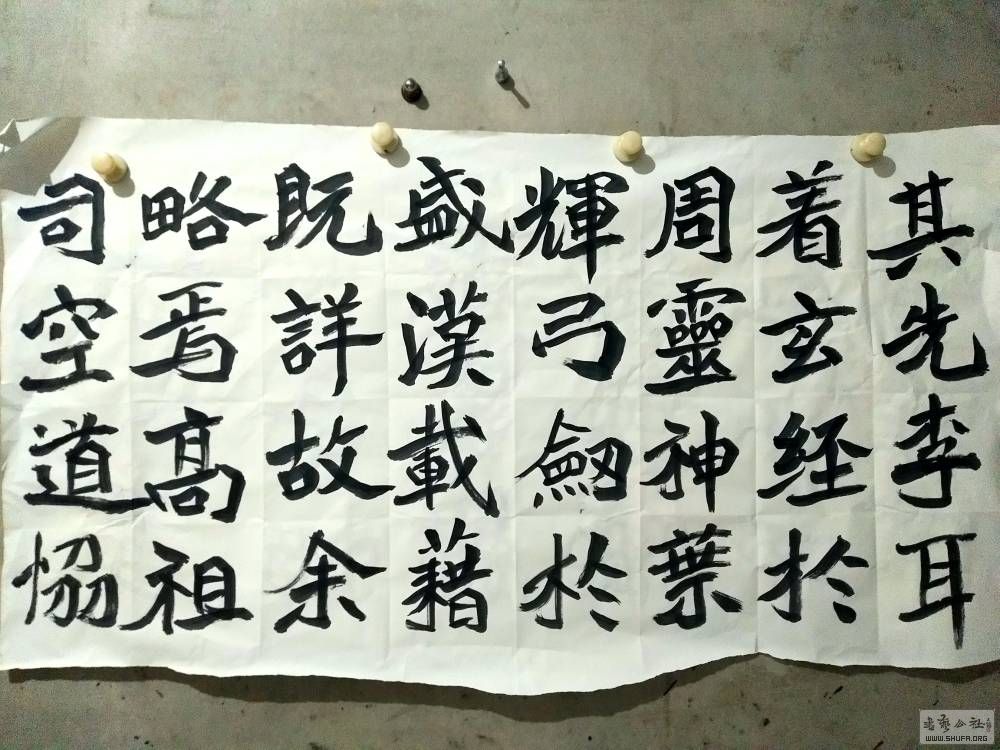 其先李耳
着玄经於
周靈神葉
輝弓劔於
盛漢載藉
既詳故余
略焉高祖
司空道恊
書藝公社
WWW.SHUFA.ORG